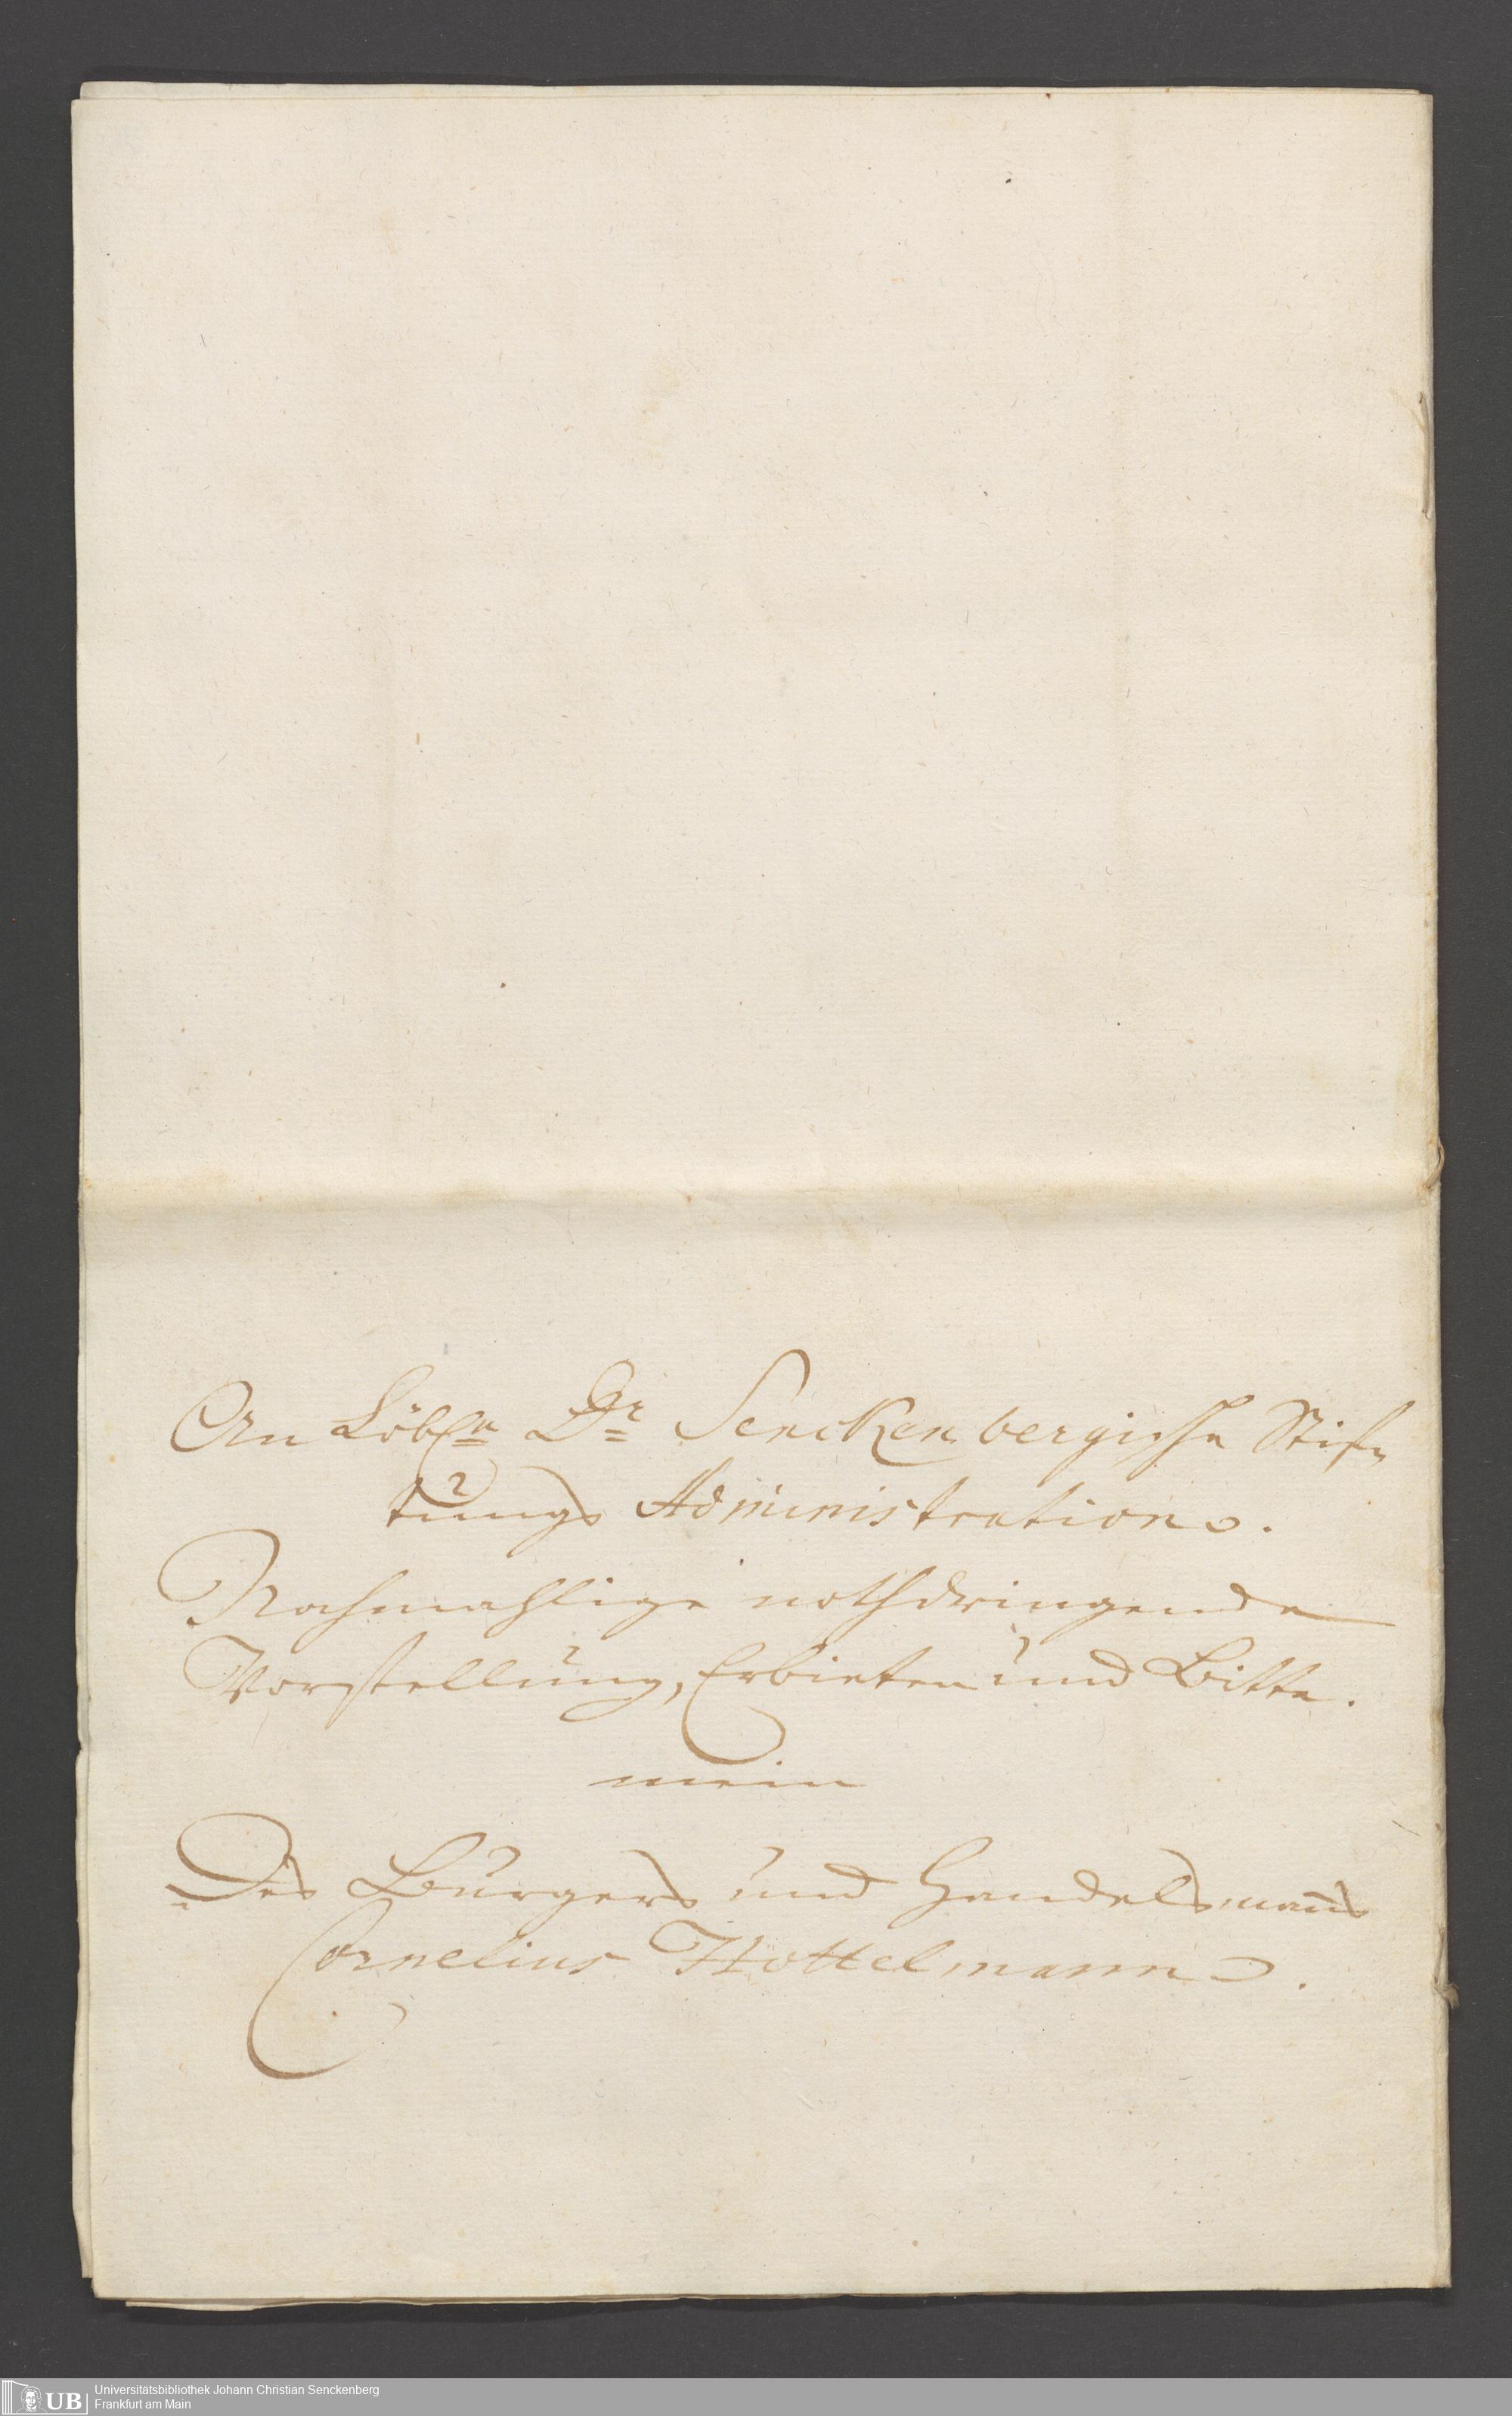 An Löbl. Dr. Senckenbergische Stif-
tungs Administration.
Nochmahlige nothdringende
Vorstellung, Erbieten und Bitte.
mein
Des Burgers und Handelsmanns
Cornelius Hottelmann.
UB
Universitätsbibliothek Johann Christian Senckenberg
Frankfurt am Main